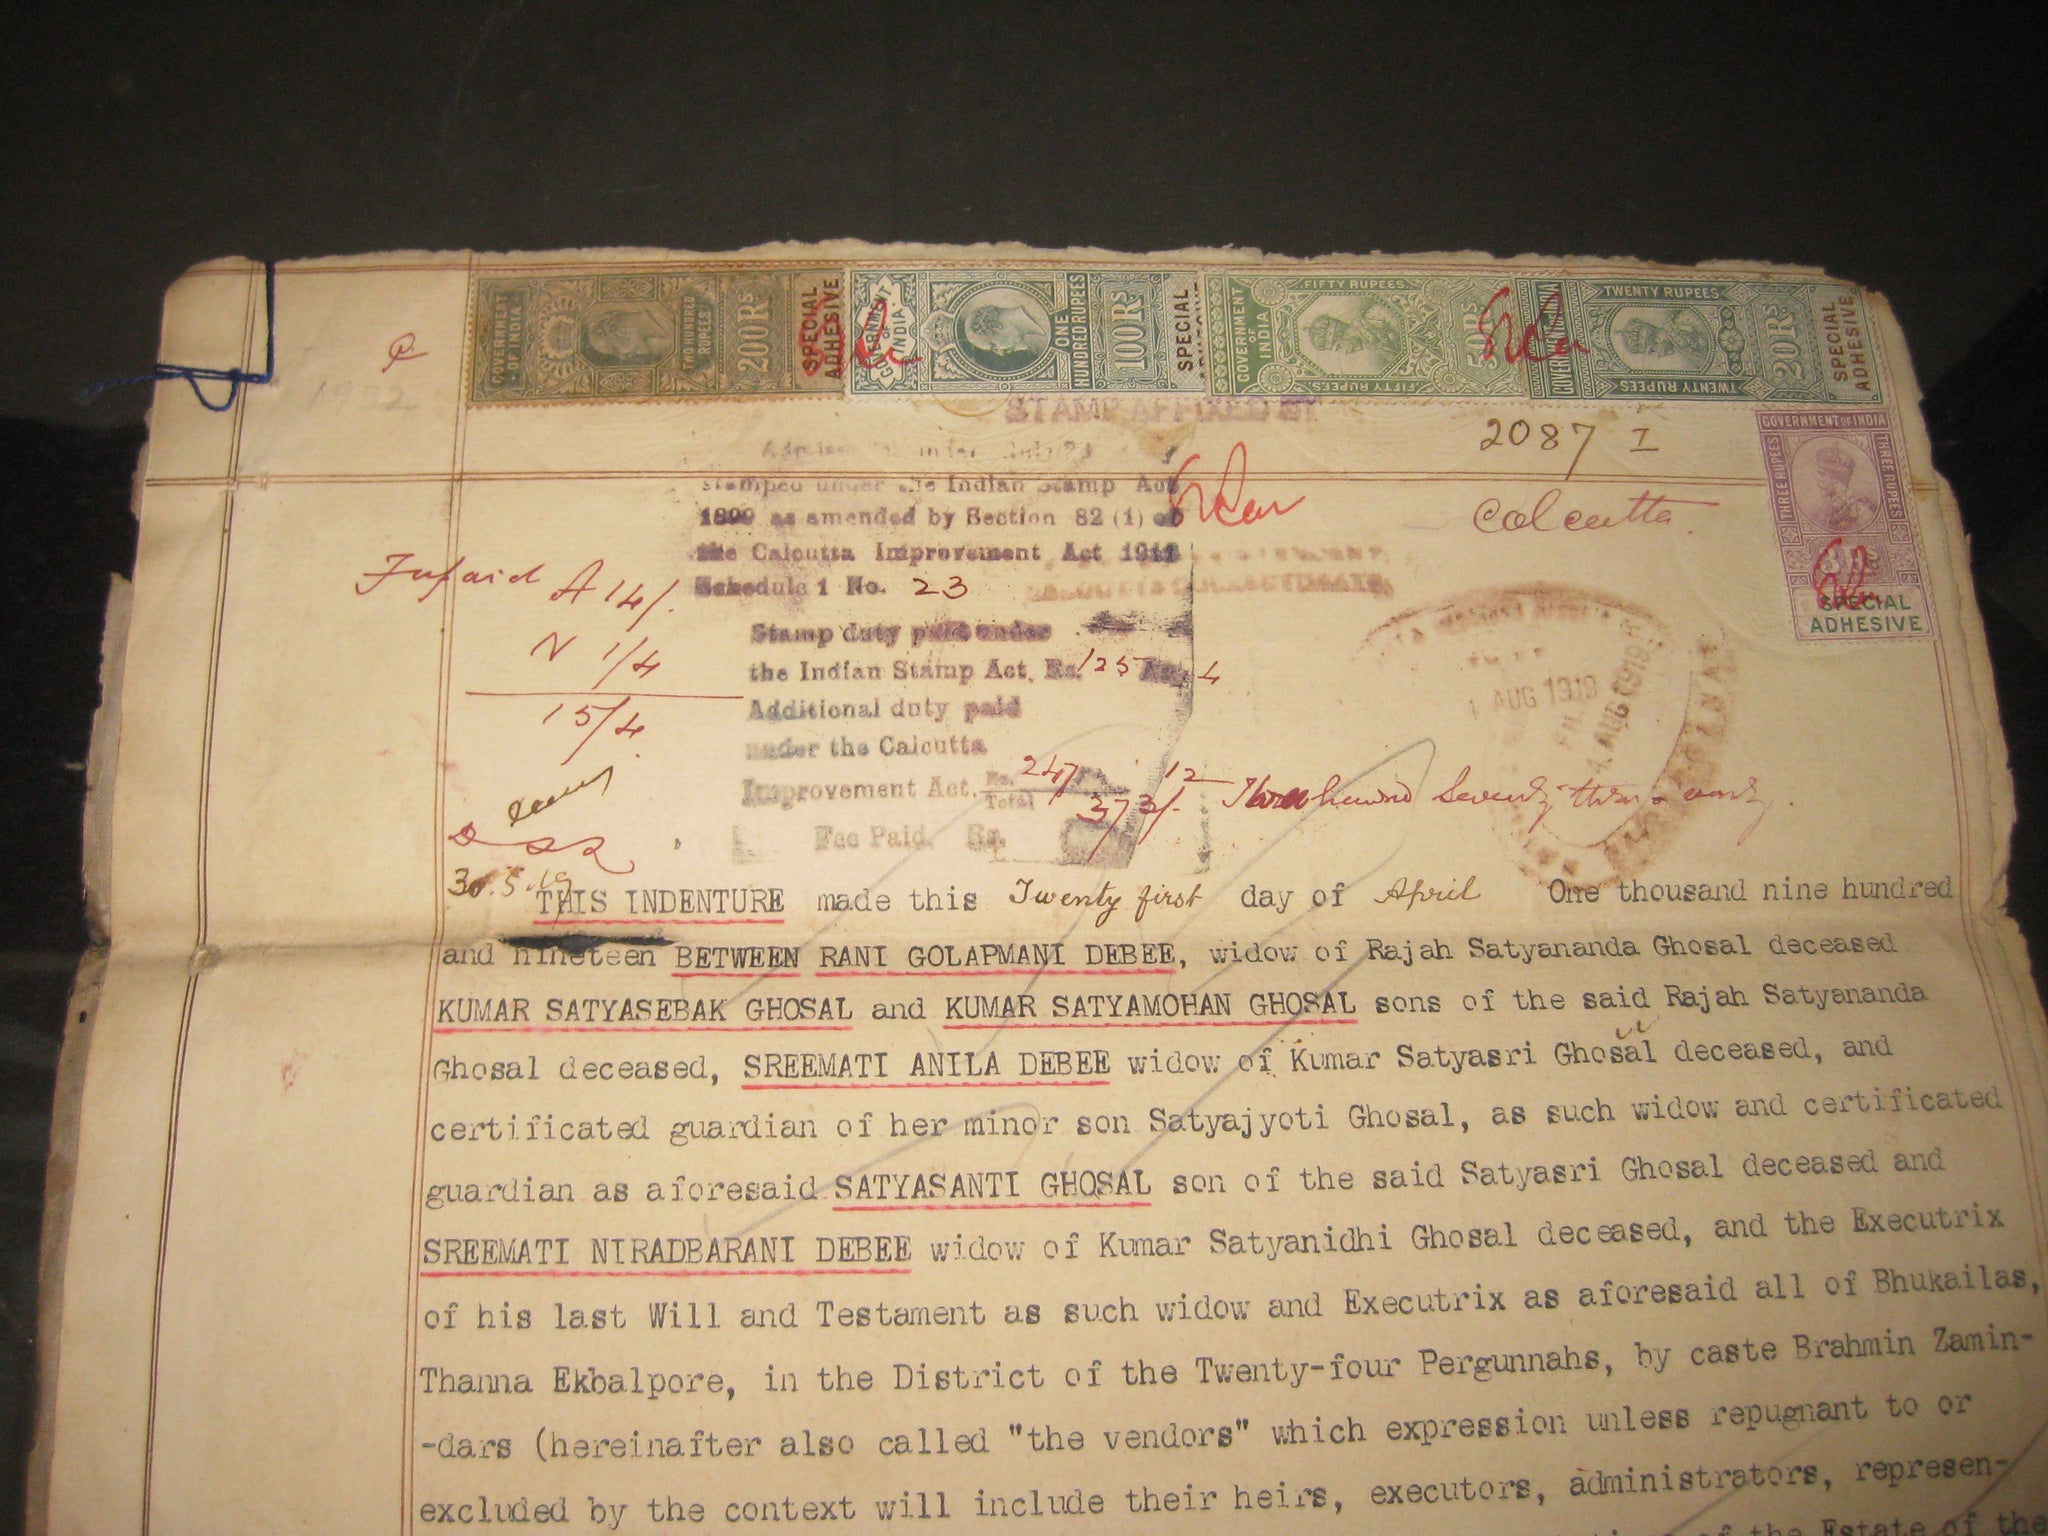 GOVERNMENT OF INDIA TWO HUNDRED RUPEES 200RS SPECIAL ADHESIVE
GOVERNMENT OF INDIA ONE HUNDRED RUPEES 100RS SPECIAL
GOVERNMENT OF INDIA FIFTY RUPEES FIFTY RUPEES 50RS
GOVERNMENT OF INDIA TWENTY RUPEES TWENTY RUPEES 20RS SPECIAL ADHESIVE
GOVERNMENT OF INDIA THREE RUPEES THREE RUPEES SPECIAL ADHESIVE
STAMP AFFIXED BY
2087 I
Calcutta
stamped under the Indian Stamp Act
1899 as amended by Section 82 (1) of
the Calcutta Improvement Act 1911
Schedule 1 No. 23
A 14/.
N 1/4
15/4
Stamp duty paid under
the Indian Stamp Act, Rs. 125 As. 4
Additional duty paid
under the Calcutta
Improvement Act. Rs. 247 12
Total 373/-
Three hundred Seventy three
Fee Paid. Rs.
1 AUG 1919
AUG 1919
30.5.19
THIS INDENTURE made this Twenty first day of April One thousand nine hundred
and nineteen BETWEEN RANI GOLAPMANI DEBEE, widow of Rajah Satyananda Ghosal deceased
KUMAR SATYASEBAK GHOSAL and KUMAR SATYAMOHAN GHOSAL sons of the said Rajah Satyananda
Ghosal deceased, SREEMATI ANILA DEBEE widow of Kumar Satyasri Ghosal deceased, and
certificated guardian of her minor son Satyajyoti Ghosal, as such widow and certificated
guardian as aforesaid SATYASANTI GHOSAL son of the said Satyasri Ghosal deceased and
SREEMATI NIRADBARANI DEBEE widow of Kumar Satyanidhi Ghosal deceased, and the Executrix
of his last Will and Testament as such widow and Executrix as aforesaid all of Bhukailas,
Thanna Ekbalpore, in the District of the Twenty-four Pergunnahs, by caste Brahmin Zamin-
-dars (hereinafter also called "the vendors" which expression unless repugnant to or
excluded by the context will include their heirs, executors, administrators, represen-
of the Estate of the